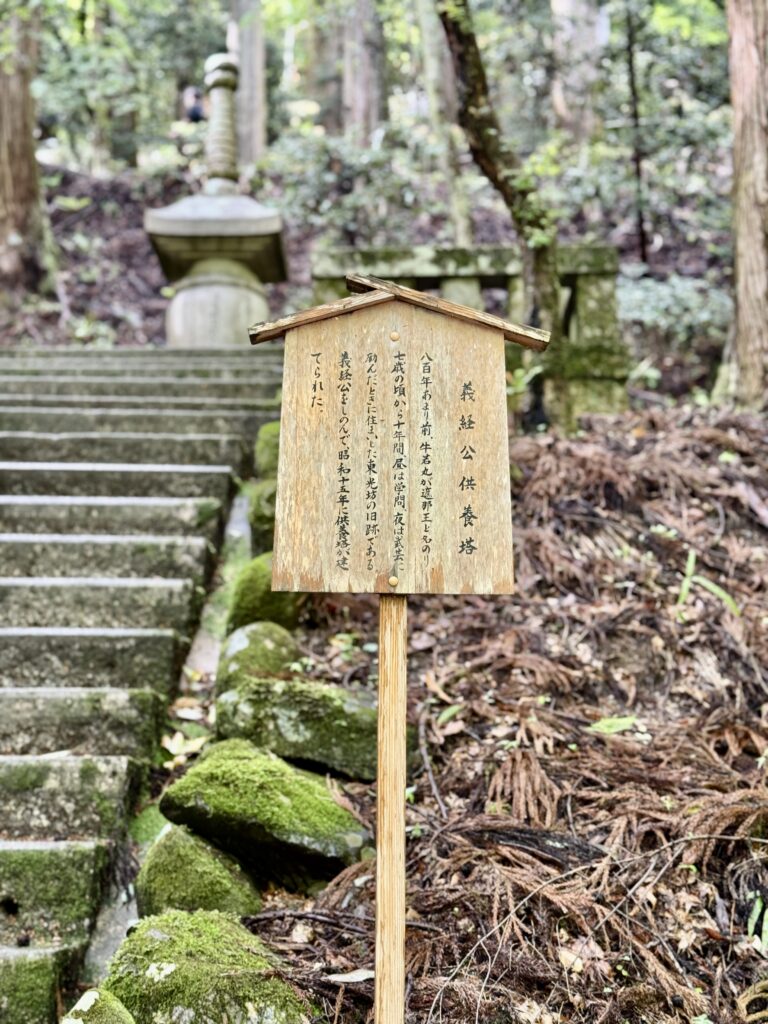 義経公供養塔
八百年あまり前、牛若丸が遮那王となのり
七歳の頃から十年間、昼は学問、夜は武芸に
励んだときに住まいした東光坊の旧跡である
義経公をしのんで、昭和十五年に供養塔が建
てられた。